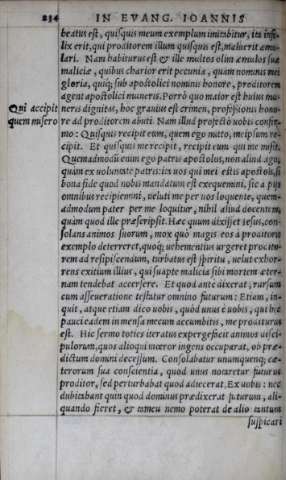 234 IN EVANG. IOANNIS
beatus est, quisquis meum exemplum imitabitur, ita infe-
lix erit, qui proditorem illum quisquis est, maluerit æmu-
lari. Nam habiturus est & ille multos olim æmulos suæ
maliciæ, quibus charior erit pecunia, quàm nominis mei
gloria, quiq; sub apostolici nominis honore, proditorem
agent apostolici muneris. Porrò quo maior est huius mu-
Qui accipit neris dignitas, hoc grauius est crimen, professionis hono-
quem misero re ad proditorem abuti. Nam illud profectò uobis confir-
mo: Quisquis recipit eum, quem ego mitto, meipsum re-
cipit. Et quisquis me recipit, recipit eum qui me misit.
Quemadmodũ enim ego patris apostolus, non aliud ago,
quàm ex uoluntate patris: ita uos qui mei estis apostoli, si
bona fide quod uobis mandatum est exequemini, sic à pijs
omnibus recipiemini, ueluti me per uos loquente, quem-
admodum pater per me loquitur, nihil aliud docentem,
quàm quod ille præscripsit. Hæc quum dixisset Iesus, con-
solans animos suorum, mox quò magis eos à proditoris
exemplo deterreret, quoq; uehementius urgeret prodito-
rem ad resipiscendum, turbatus est spiritu, uelut exhor-
rens exitium illius, qui suapte malicia sibi mortem æter-
nam tendebat accersere. Et quod ante dixerat, rursum
cum asseueratione testatur omnino futurum: Etiam, in-
quit, atque etiam dico uobis, quòd unus è uobis, qui hic
pauci eadem in mensa mecum accumbitis, me proditurus
est. Hic sermo toties iteratus expergefecit animos disci-
pulorum, quos alioqui mœror ingens occuparat, ob præ-
dictum domini decessum. Consolabatur unumquenq; cæ-
terorum sua conscientia, quod unus notaretur futurus
proditor, sed perturbabat quod adiecerat, Ex uobis: nec
dubitabant quin quod dominus prædixerat futurum, ali-
quando fieret, & tamen nemo poterat de alio tantum
suspicari